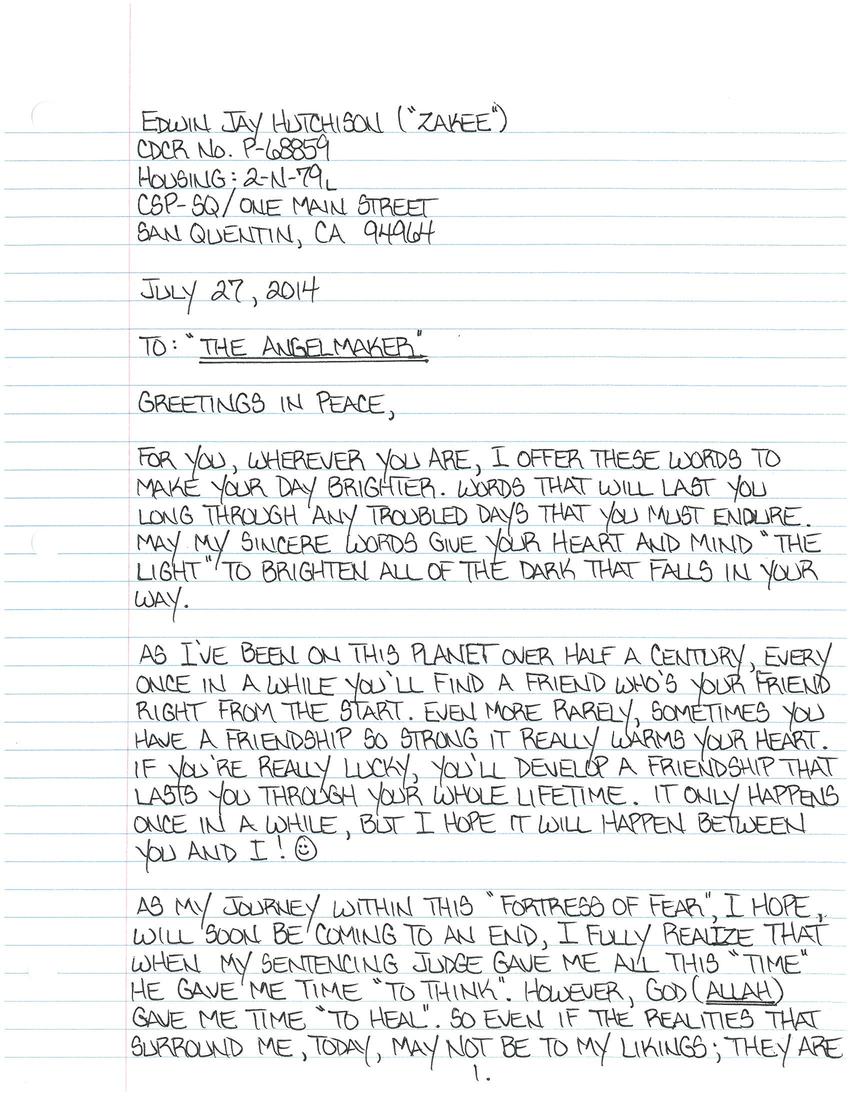 EDWIN JAY HUTCHISON ("ZAKEE")
CDCR NO. P-68859
HOUSING: 2-N-79L
CSP-SQ/ONE MAIN STREET
SAN QUENTIN, CA 94964
JULY 27, 2014
TO: "THE ANGELMAKER"
GREETINGS IN PEACE,
FOR YOU, WHEREVER YOU ARE, I OFFER THESE WORDS TO
MAKE YOUR DAY BRIGHTER. WORDS THAT WILL LAST YOU
LONG THROUGH ANY TROUBLED DAYS THAT YOU MUST ENDURE.
MAY MY SINCERE WORDS GIVE YOUR HEART AND MIND "THE
LIGHT" TO BRIGHTEN ALL OF THE DARK THAT FALLS IN YOUR
WAY.
AS I'VE BEEN ON THIS PLANET OVER HALF A CENTURY, EVERY
ONCE IN A WHILE YOU'LL FIND A FRIEND WHO'S YOUR FRIEND
RIGHT FROM THE START. EVEN MORE RARELY, SOMETIMES YOU
HAVE A FRIENDSHIP SO STRONG IT REALLY WARMS YOUR HEART.
IF YOU'RE REALLY LUCKY, YOU'LL DEVELOP A FRIENDSHIP THAT
LASTS YOU THROUGH YOUR WHOLE LIFETIME. IT ONLY HAPPENS
ONCE IN A WHILE, BUT I HOPE IT WILL HAPPEN BETWEEN
YOU AND I! ☺
AS MY JOURNEY WITHIN THIS "FORTRESS OF FEAR", I HOPE,
WILL SOON BE COMING TO AN END, I FULLY REALIZE THAT
WHEN MY SENTENCING JUDGE GAVE ME ALL THIS "TIME"
HE GAVE ME TIME "TO THINK". HOWEVER, GOD (ALLAH)
GAVE ME TIME "TO HEAL". SO EVEN IF THE REALITIES THAT
SURROUND ME, TODAY, MAY NOT BE TO MY LIKINGS; THEY ARE
1.